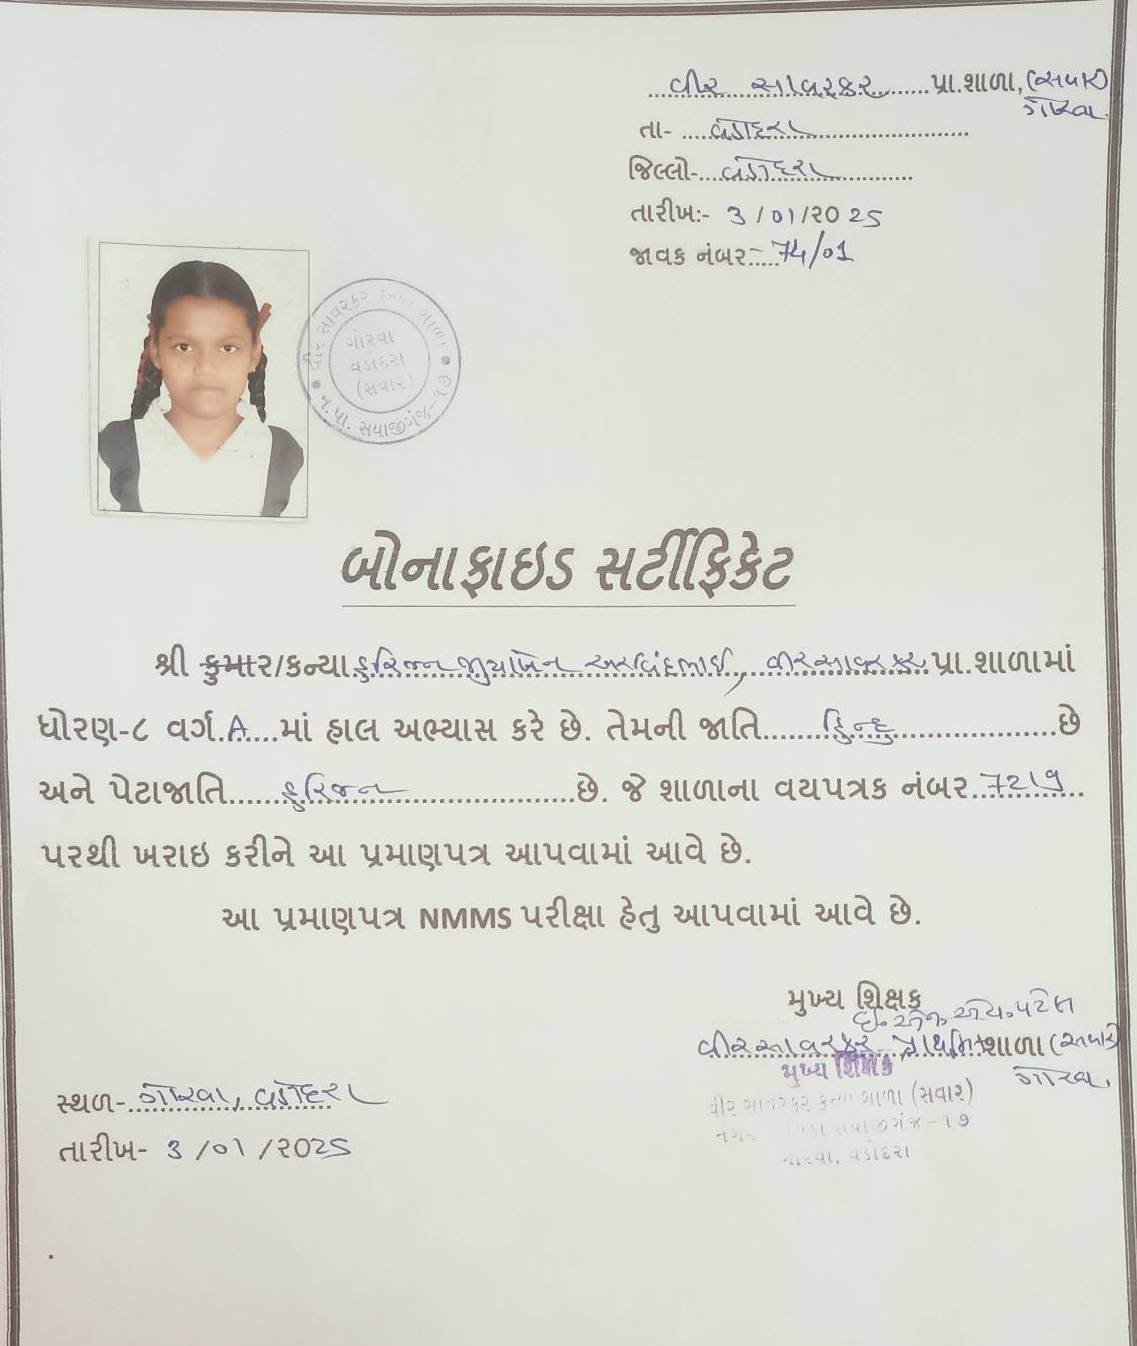 વીર સાવરકર પ્રા.શાળા, (સવાર)
ગોરવા.
તા- વડોદરા
જિલ્લો- વડોદરા
તારીખ:- 3/01/2025
જાવક નંબર:- 74/01
વીર સાવરકર કન્યા શાળા
ગોરવા
વડોદરા
(સવાર)
ન. પા. સયાજીગંજ-૧૭
બોનાફાઇડ સર્ટીફિકેટ
શ્રી કુમાર/કન્યા હરિજન જીયાબેન અરવિંદભાઈ, વીર સાવરકર પ્રા.શાળામાં
ધોરણ-૮ વર્ગ A માં હાલ અભ્યાસ કરે છે. તેમની જાતિ હિન્દુ છે
અને પેટાજાતિ હરિજન છે. જે શાળાના વયપત્રક નંબર 7219
પરથી ખરાઇ કરીને આ પ્રમાણપત્ર આપવામાં આવે છે.
આ પ્રમાણપત્ર NMMS પરીક્ષા હેતુ આપવામાં આવે છે.
મુખ્ય શિક્ષક
પટેલ
વીર સાવરકર પ્રાથમિક શાળા (સવાર)
ગોરવા,
મુખ્ય શિક્ષક
વીર સાવરકર કન્યા શાળા (સવાર)
સયાજીગંજ-૧૭
ગોરવા, વડોદરા
સ્થળ- ગોરવા, વડોદરા
તારીખ- 3/01/2025